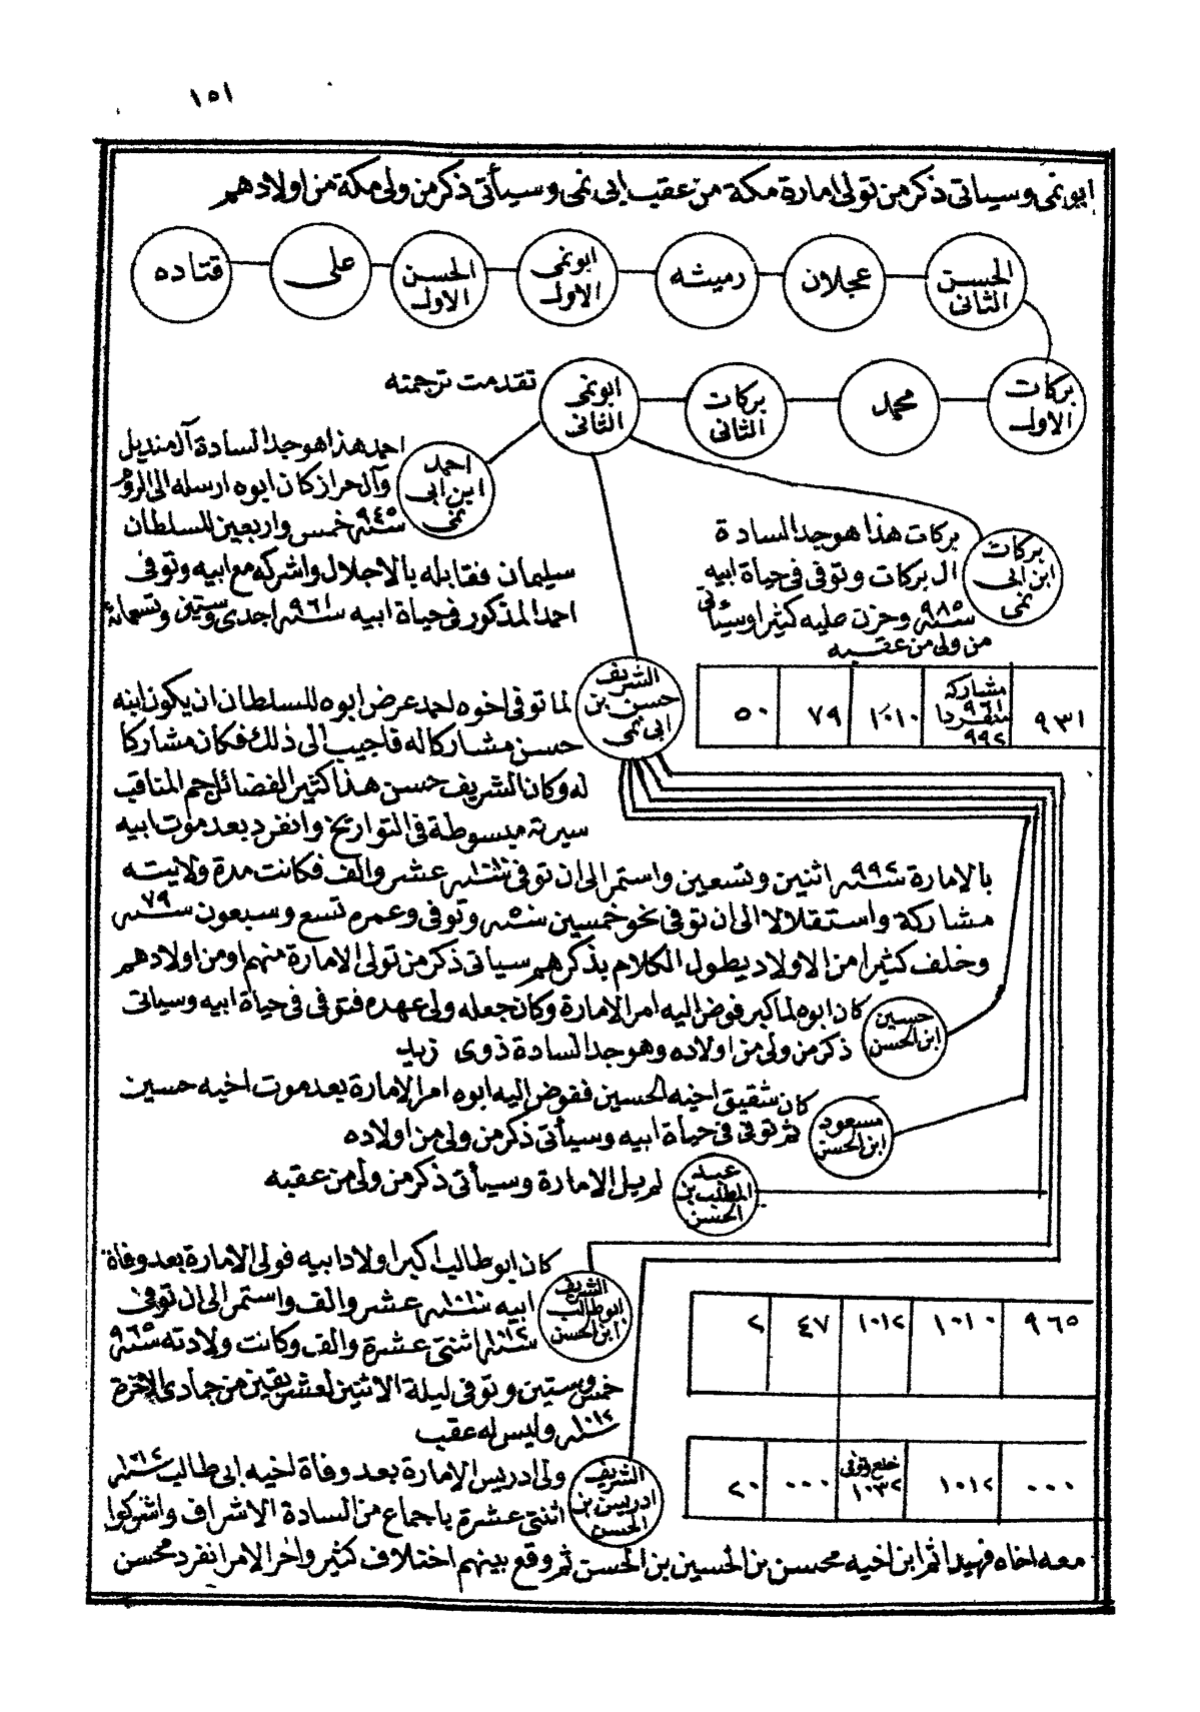 ١٥١
ابو نمى وسياتى ذكر من تولى امارة مكة من عقب ابى نمى وسيأتى ذكر من ولى مكة من اولادهم
الحسن الثانى
عجلان
رميثه
ابو نمى الاول
الحسن الاول
على
قتاده
بركات الاول
محمد
بركات الثانى
ابو نمى الثانى
تقدمت ترجمته
احمد ابن ابى نمى
احمد هذا هو جد السادة آل منديل
وآل حراز كان ابوه ارسله الى الروم
سنة ٩٤٥ خمس واربعين للسلطان
سيليمان فقابله بالاجلال واشركه مع ابيه وتوفى
احمد المذكور فى حياة ابيه سنة ٩٦١ احدى وستين وتسمائة
بركات ابن ابى نمى
بركات هذا هو جد السادة
ال بركات وتوفى فى حياة ابيه
سنة ٩٨٥ وحزن عليه كثيرا وسيأتى
من ولى من عقبه
٩٣١
مشاركة ٩٦١ منفردا ٩٩٢
١٠١٠
٧٩
٥٠
الشريف حسن بن ابى نمى
لما توفى اخوه احمد عرض ابوه للسلطان ان يكون ابنه
حسن مشاركا له فاجيب الى ذلك فكان مشاركا
له وكان الشريف حسن هذا كثير الفضائل جم المناقب
سيرته مبسوطة فى التواريخ وانفرد بعد موت ابيه
بالامارة سنة ٩٩٢ اثنين وتسعين واستمر الى ان توفى سنة ١٠١٠ عشر والف فكانت مدة ولايته
مشاركة واستقلالا الى ان توفى نحو خمسين سنة ٥٠ وتوفى وعمره تسع وسبعون سنة ٧٩
وخلف كثيرا من الاولاد يطول الكلام بذكرهم سياتى ذكر من تولى الامارة منهم او من اولادهم
حسين ابن الحسن
كان ابوه لما كبر فوض اليه امر الامارة وكان جعله ولى عهده فتوفى فى حياة ابيه وسياتى
ذكر من ولى من اولاده وهو جد السادة ذوى زيد
مسعود ابن الحسن
كان شقيق اخيه الحسين ففوض اليه ابوه امر الامارة بعد موت اخيه حسين
ثم توفى فى حياة ابيه وسيأتى ذكر من ولى من اولاده
عبد المطلب بن الحسن
لم يل الامارة وسيأتى ذكر من ولى من عقبه
الشريف ابو طالب ابن الحسن
كان ابو طالب اكبر اولاد ابيه فولى الامارة بعد وفاة
ابيه سنة ١٠١٠ عشر والف واستمر الى ان توفى
سنة ١٠١٢ اثنتى عشرة والف وكانت ولادته سنة ٩٦٥
خمس وستين وتوفى ليلة الاثنين لعشر بقين من جمادى الاخرة
سنة ١٠١٢ وليس له عقب
٩٦٥
١٠١٠
١٠١٢
٤٧
٢
الشريف ادريس بن الحسن
ولى ادريس الامارة بعد وفاة اخيه ابى طالب سنة ١٠١٢
اثنتى عشرة باجماع من السادة الاشراف واشركوا
معه اخاه فهيدا ثم ابن اخيه محسن بن الحسين بن الحسن ثم وقع بينهم اختلاف كثير واخر الامر انفرد محسن
٠٠٠
١٠١٢
خلع وتوفى ١٠٣٢
٠٠٠
٢٠